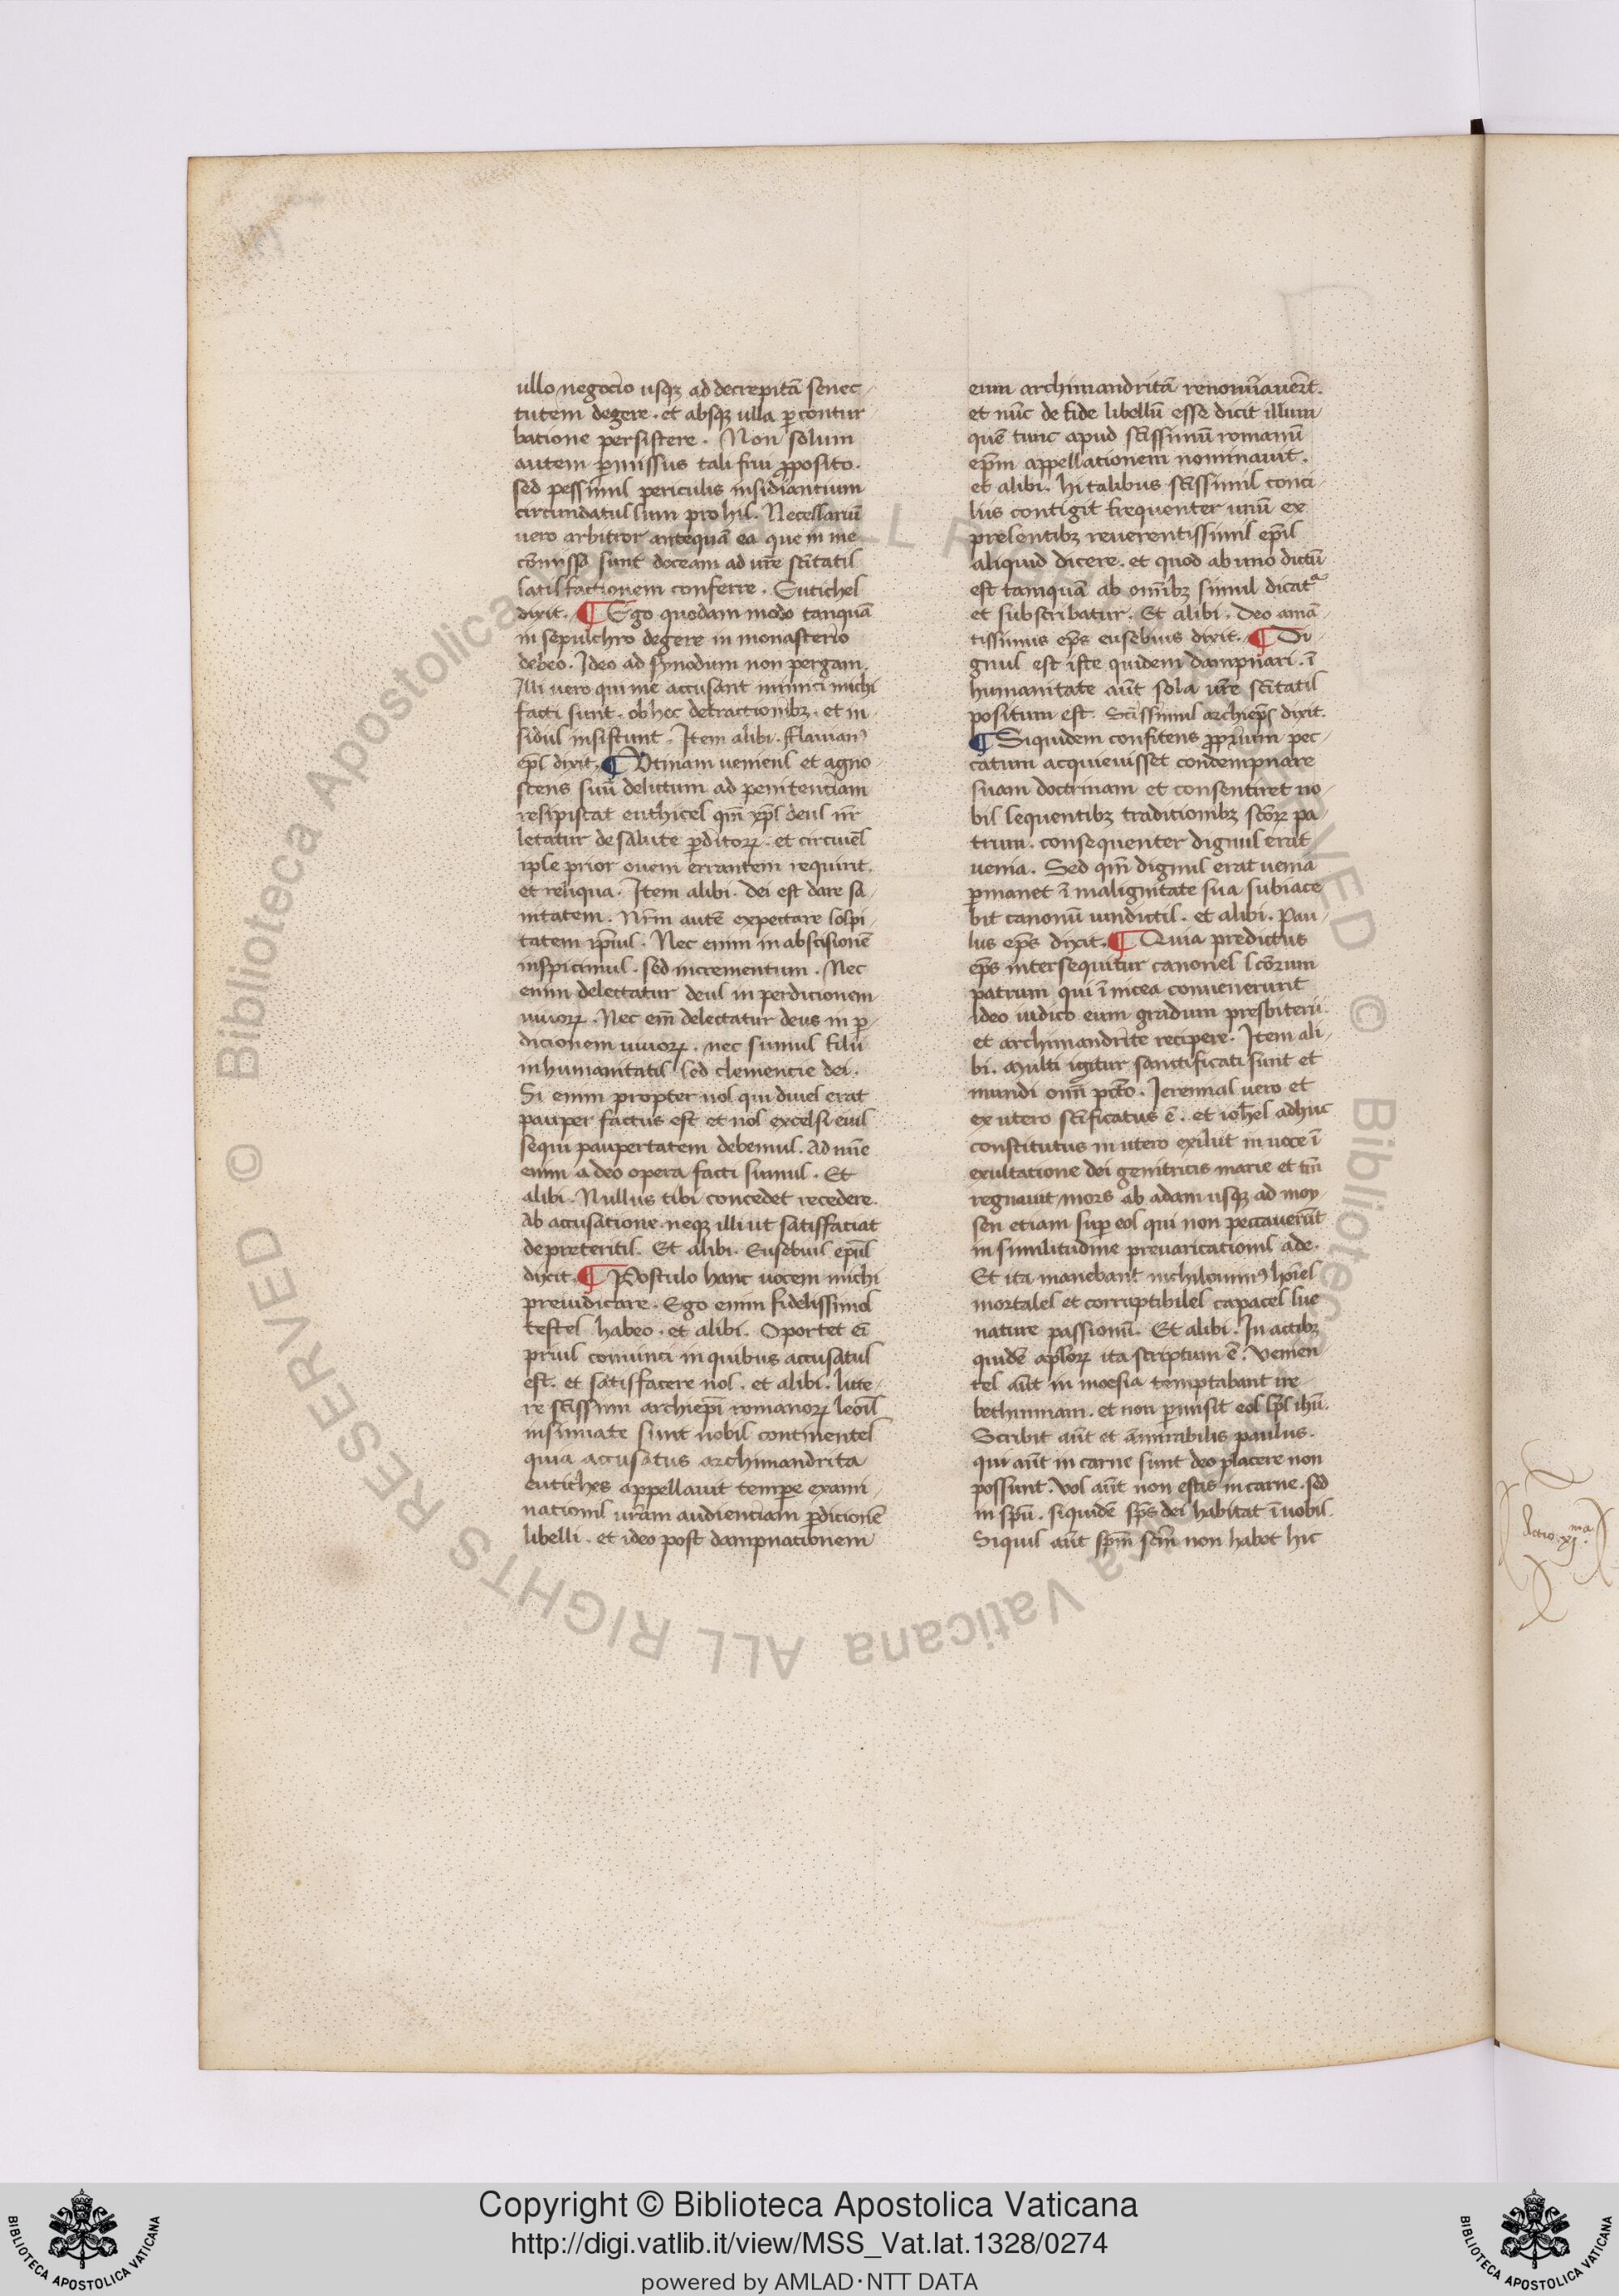 ullo negocio usqꝫ ad decrepitā senec-
tutem degere. et absqꝫ ulla ꝑcontur
batione persistere. Non solum
autem ꝑmissus tali frui ꝓposito.
sed pessimis periculis insidiantium
circundatus sum pro his. Necessariū
uero arbitror antequā ea que in me
cōmissa sunt doceam ad ur̄e sc̄itatis
satisfactionem conferre. Eutiches
dixit. ¶ Ego quodam modo tanquā
in sepulchro degere in monasterio
debeo. Ideo ad synodum non pergam.
Illi uero qui me accusant inimici michi
facti sunt. ob hec detractionibꝫ. et in-
sidus insistunt. Item alibi. fflauianꝰ
ep̄s dixit. ¶ Vtinam ueniens et agno-
scens suū delictum ad penitentiam
resipiscat euthices qm̄ xp̄s deus nr̄
letatur de salute ꝑditoꝝ. et circuiēs
ipse prior ouem errantem requirit.
et reliqua. Item alibi. dei est dare sa-
nitatem. Nr̄m autē expectare sospi-
tatem ip̄ius. Nec enim in abscisionē
inspicimus. sed incrementum. Nec
enim delectatur deus in perdicionem
uiuoꝝ. Nec em̄ delectatur deus in ꝑ-
dicionem uiuoꝝ. nec sumus filii
inhumanitatis sed clemencie dei.
Si enim propter nos qui diues erat
pauper factus est et nos excelsi eius
sequi paupertatem debemus. Ad
enim a deo opera facti sumus. Et
alibi. Nullus tibi concedet recedere.
ab accusatione neqꝫ illi ut satisfaciat
de preteritis. Et alibi. Eusebius ep̄us
dixit. ¶ Postulo hanc uocem michi
preiudicare. Ego enim fidelissimos
testes habeo. et alibi. Oportet eī
prius conuinci in quibus accusatus
est. et satisfacere nos. et alibi. litte-
re sc̄issimi archiep̄i romanoꝝ leoīs
insinuate sunt nobis continentes
quia accusatus archimandrita
eutiches appellauit tempe exami-
nationis ur̄am audientiam ꝑdicionē
libelli. et ideo post dampnationem
eum archimandritā renonūiauer̄t.
et nūc de fide libellū esse dicit illum
quē tunc apud sc̄issimū romanū
ep̄m appellationem nominauit.
et alibi. hi talibus sc̄issimis conci-
liis contigit frequenter unū ex
presentibꝫ reuerentissimis ep̄is
aliquid dicere. et quod ab uno dictū
est tamquā ab om̄ibꝫ simul dicatᵃ
et subscribatur. Et alibi. Deo amā-
tissimus ep̄s eusebius dixit. ¶ Di-
gnus est iste quidem dampnari. ī
humanitate aūt sola ur̄e sc̄itatis
positum est. Sc̄issimus archiep̄s dixit.
¶ Siquidem confitens ꝓprium pec-
catum acquieuisset condempnare
suam doctrinam et consentiret no-
bis sequentibꝫ traditionibꝫ sc̄oꝝ pa-
trum. consequenter dignus erat
uenia. Sed qm̄ dignus erat uenia
ꝑmanet ī malignitate sua subiace
bit canonū uindictis. et alibi. Pau-
lus ep̄s dixit. ¶ Quia predictus
ep̄s intersequitur canones sc̄orum
patrum qui ī nicea conuenerunt
Ideo iudico eum gradum presbiterii.
et archimandrite recipere. Item ali-
bi. multi igitur sanctificati sunt et
mundi om̄i pc̄to. Ieremias uero et
ex utero sc̄ificatus ē. et ioh̄es adhuc
constitutus in utero exiluit in uoce ī
exultatione dei genitricis marie et tm̄
regnauit mors ab adam usqꝫ ad moy-
sen etiam suꝑ eos qui non peccauerūt
in similitudine preuaricationis ade.
Et ita manebant nichilominꝰ hoīes
mortales et corruptibiles capaces sue
nature passionū. Et alibi. In actibꝫ
quidē aplꝰoꝝ ita scriptum ē. Venien-
tes aūt in moesia temptabant ire
bethiniam. et non ꝑmisit eos sp̄s ihū.
Scribit aūt et āmirabilis paulus.
qui aūt in carne sunt deo placere non
possunt. Vos aūt non estis in carne. sed
in sp̄u. siquidē sp̄s dei habitat ī uobis.
Siquis aūt sp̄m sc̄m non habet hic
Actio xjᵐᵃ.
Copyright © Biblioteca Apostolica Vaticana
http://digi.vatlib.it/view/MSS_Vat.lat.1328/0274
powered by AMLAD·NTT DATA
BIBLIOTECA APOSTOLICA VATICANA
BIBLIOTECA APOSTOLICA VATICANA